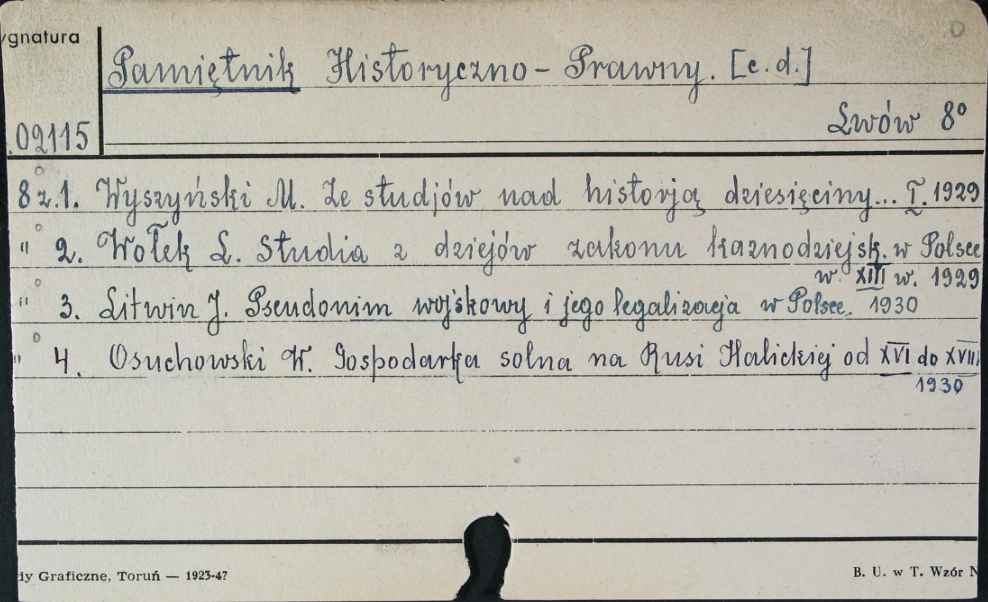 ygnatura
Pamiętnik Historyczno-Prawny. [c.d.]
Lwów 8°
.02115
8 z.1. Wyszyński M. Ze studjów nad historją dziesięciny... I. 1929
" 2. Wołek L. Studia z dziejów zakonu kaznodziejsk. w Polsce
w XIII w. 1929
" 3. Litwin J. Pseudonim wojskowy i jego legalizacja w Polsce. 1930
" 4. Osuchowski W. Gospodarka solna na Rusi Halickiej od XVI do XVIII
1930
dy Graficzne, Toruń — 1923-47
B. U. w T. Wzór N